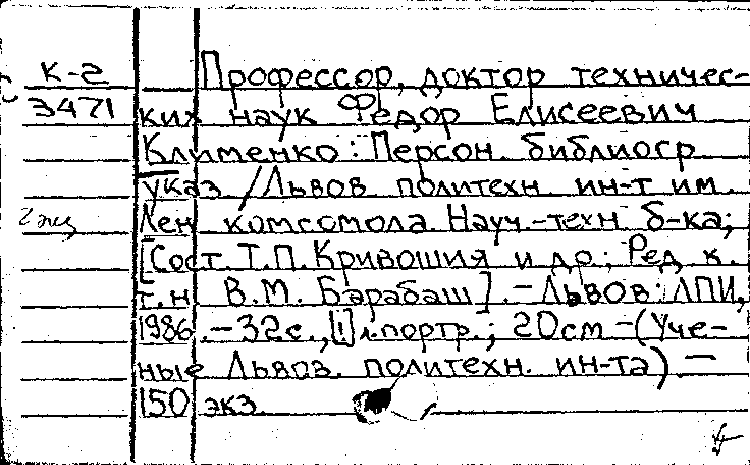 К-2 Профессор, доктор техничес-
3471 ких наук Федор Елисеевич
Клименко: Персон. библиогр
указ. / Львов политехн. ин-т им
2 экз Лен. комсомола. Науч.-техн б-ка;
[Сост. Т.П. Кривошия и др.; Ред к.
т.н. В.М. Барабаш]. – Львов: ЛПИ,
1986. – 32с., [1] л. портр.; 20см – (Уче-
ные Львов. политехн. ин-та) –
150 экз